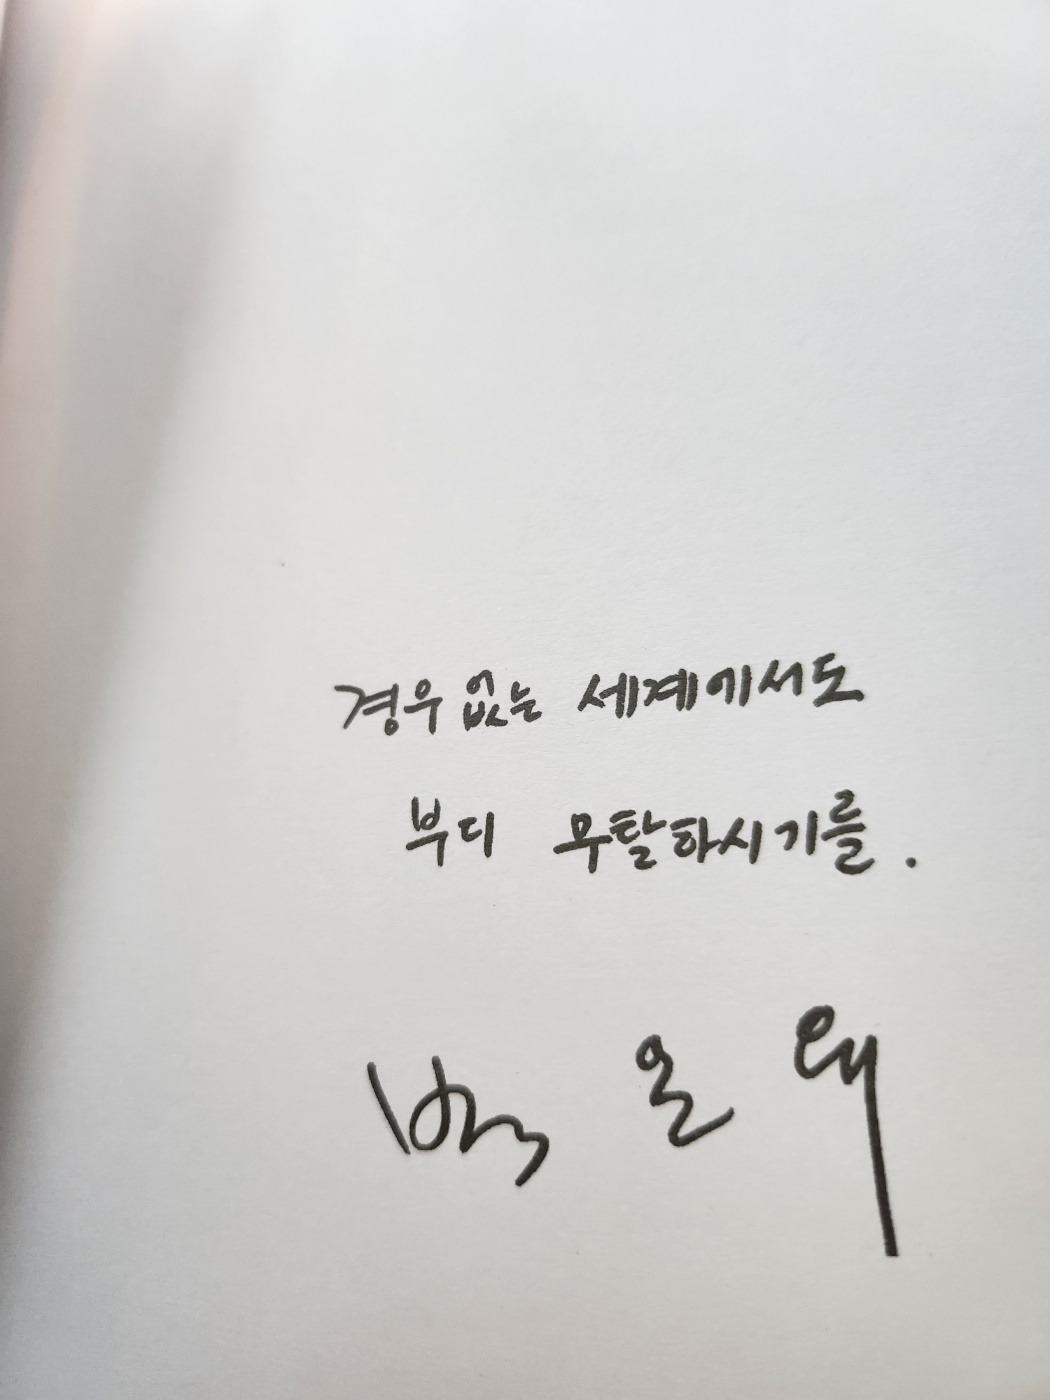 경우 없는 세계에서도
부디 무탈하시기를.
백온유